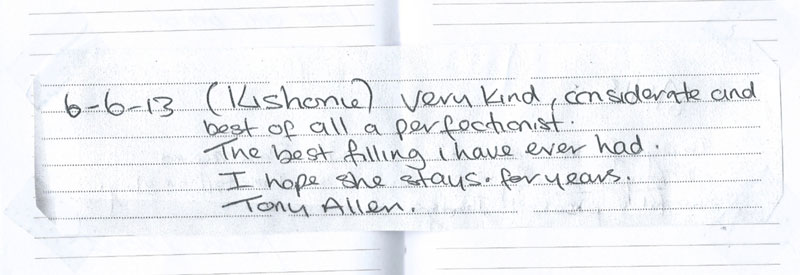 6-6-13 (Kishonie) very kind, considerate and
best of all a perfectionist.
The best filling i have ever had.
I hope she stays. for years.
Tony Allen.